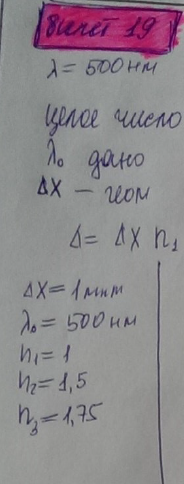 Билет 19
λ = 500 нм
целое число
λ₀ дано
ΔX – геом
Δ = ΔX n₁
ΔX = 1 мкм
λ₀ = 500 нм
n₁ = 1
n₂ = 1,5
n₃ = 1,75